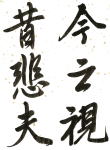 今之視
昔悲夫